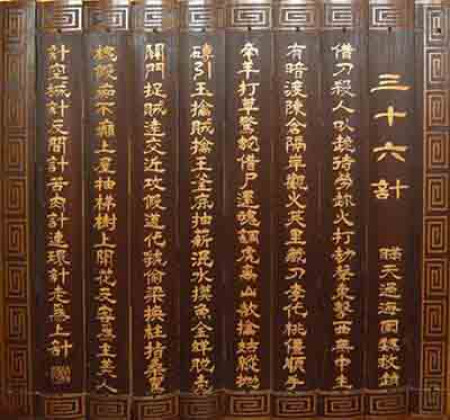 三十六計
瞞天過海圍魏救趙
借刀殺人以逸待勞趁火打劫聲東擊西無中生
有暗渡陳倉隔岸觀火笑里藏刀李代桃僵順手
牽羊打草驚蛇借尸還魂調虎離山欲擒姑縱拋
磚引玉擒賊擒王釜底抽薪混水摸魚金蟬脫殼
關門捉賊遠交近攻假道伐虢偷梁換柱指桑罵
槐假痴不癲上屋抽梯樹上開花反客為主美人
計空城計反間計苦肉計連環計走為上計